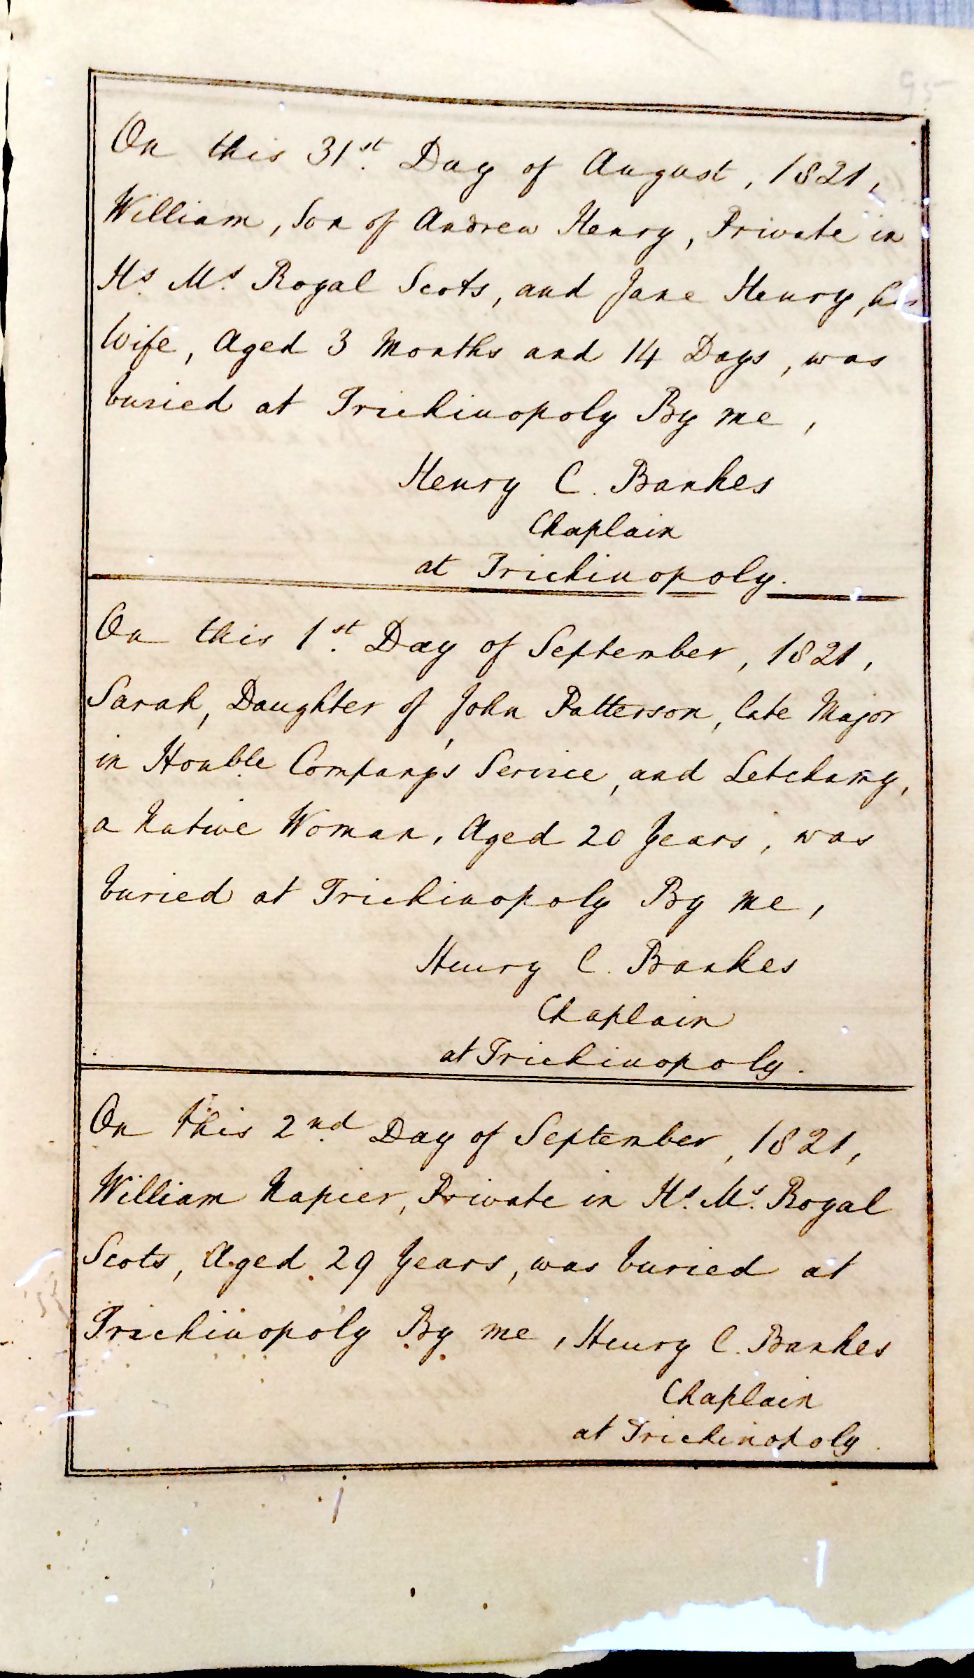 95
On this 31st. Day of August, 1821,
William, Son of Andrew Henry, Private in
Hs. Ms. Royal Scots, and Jane Henry, his
Wife, Aged 3 Months and 14 Days, was
buried at Trichinopoly By me,
Henry C. Bankes
Chaplain
at Trichinopoly.
On this 1st. Day of September, 1821,
Sarah, Daughter of John Patterson, late Major
in Honble Company's Service, and Letchamy,
a Native Woman, Aged 20 Years, was
buried at Trichinopoly By me,
Henry C. Bankes
Chaplain
at Trichinopoly.
On this 2nd. Day of September, 1821,
William Napier, Private in Hs. Ms. Royal
Scots, Aged 29 Years, was buried at
Trichinopoly By me, Henry C. Bankes
Chaplain
at Trichinopoly.